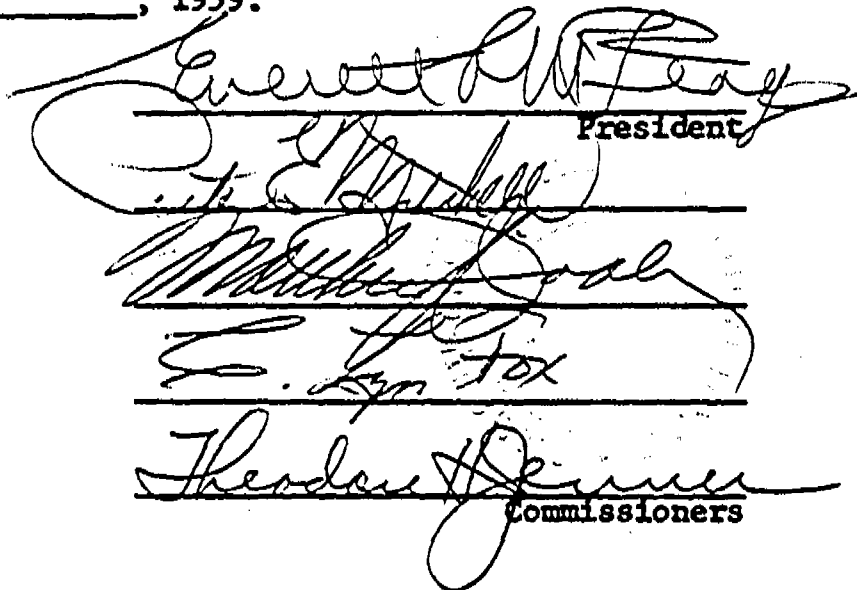 , 1959.
Everett C. McKeage
President
E. Mitchell
Matthew J. Dooley
E. Lyn Fox
Theodore H Jenner
Commissioners